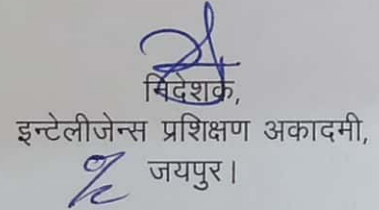 निदेशक,
इन्टेलीजेन्स प्रशिक्षण अकादमी,
जयपुर।